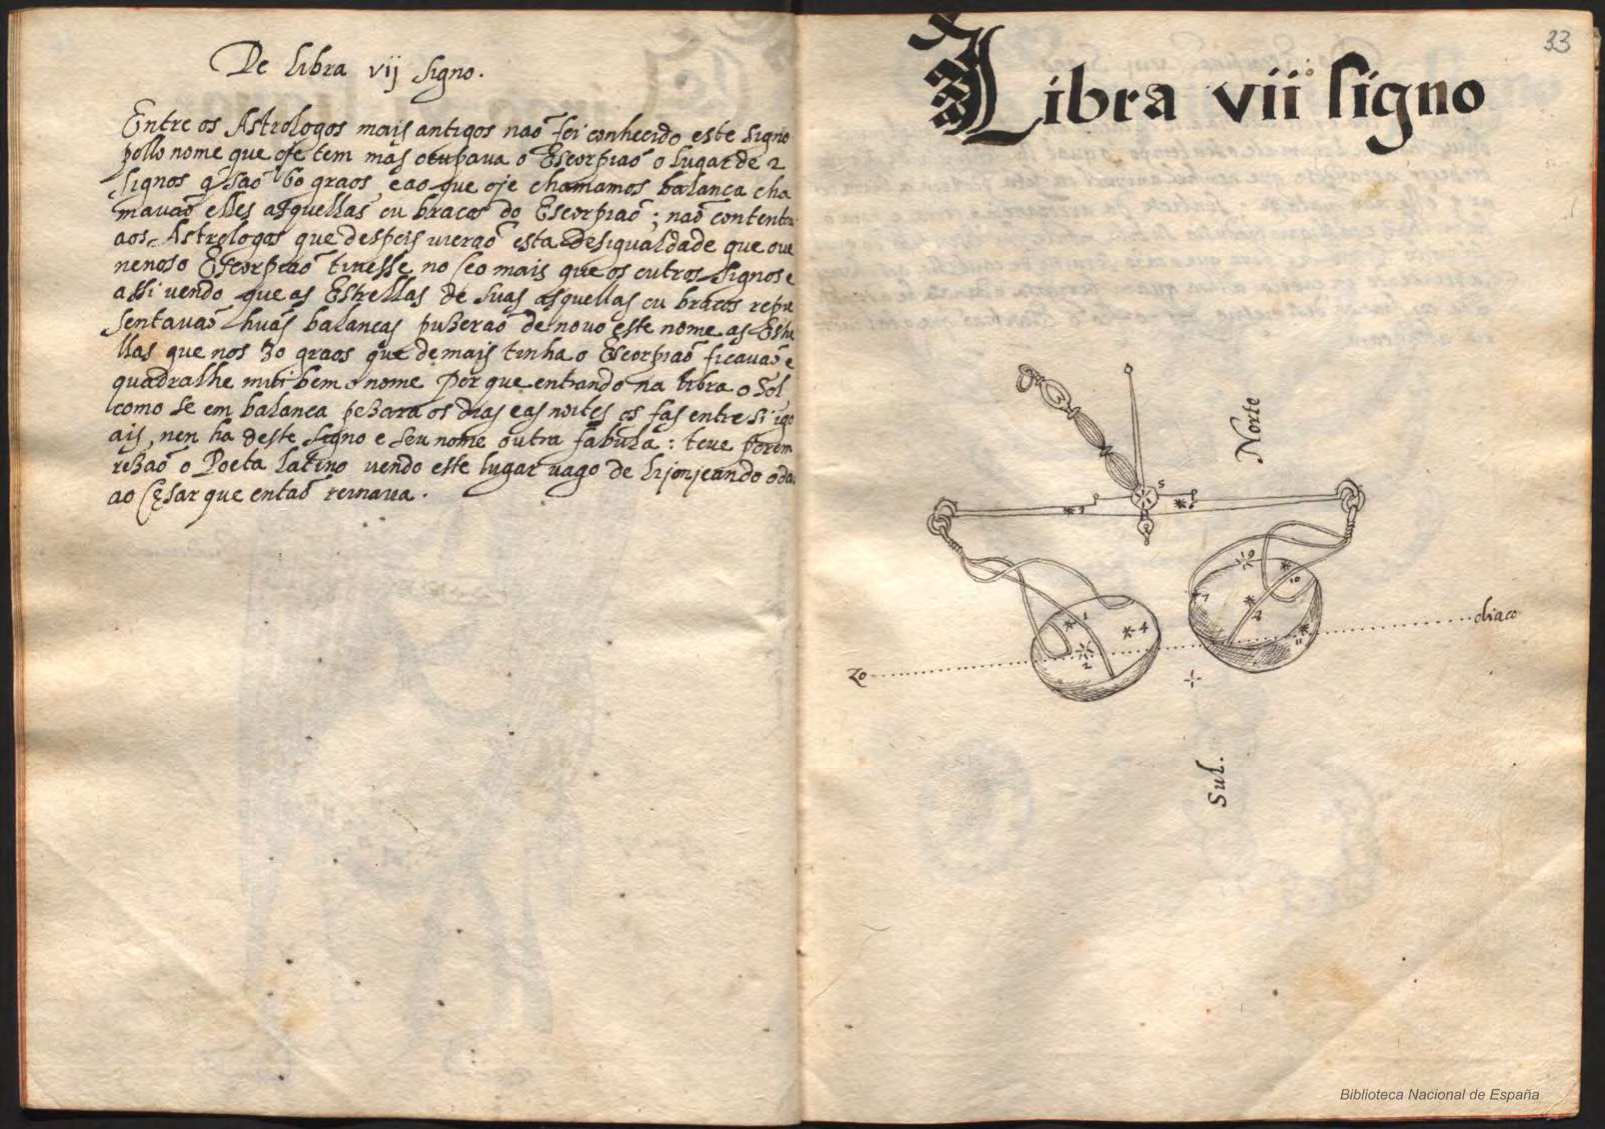 De libra vij signo.
Entre os Astrologos mais antigos naõ foi conhecido este signo
pollo nome que oje tem mas ocupava o Escorpiaõ o lugar de 2
signos q̃ saõ 60 graos, e ao que oje chamamos balança cha
mavaõ elles asquellas ou braços do Escorpiaõ; naõ contentou
aos Astrologos que despois vieraõ esta desigualdade que o ve
nenoso Escorpiaõ tivesse no Ceo mais que os outros signos e
assi vendo que as Estrellas de suas asquellas ou braços repre
sentavaõ huãs balanças puseraõ de novo este nome as Estre
llas que nos 30 graos que demais tinha o Escorpiaõ ficavaõ e
quadralhe mui bem o nome porque entrando na libra o Sol
como se em balança pesara os dias e as noites os fas entre si igo
ais, nen ha deste signo e seu nome outra fabula: teve porem
resaõ o Poeta latino vendo este lugar vago de lijonjeando o dar
ao Cęsar que entaõ reinava.
33
Libra vii signo
Norte
5
3
8
9
10
7
1
4
2
2
11
diaco
Zo
Sul.
Biblioteca Nacional de España